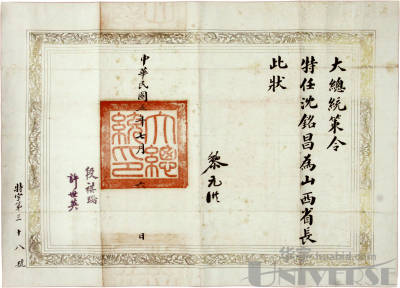 大總統策令
特任沈銘昌為山西省長
此狀
黎元洪
大總統印
中華民國年七月日
段祺瑞
許世英
特字第三十八號
UNIVERSE